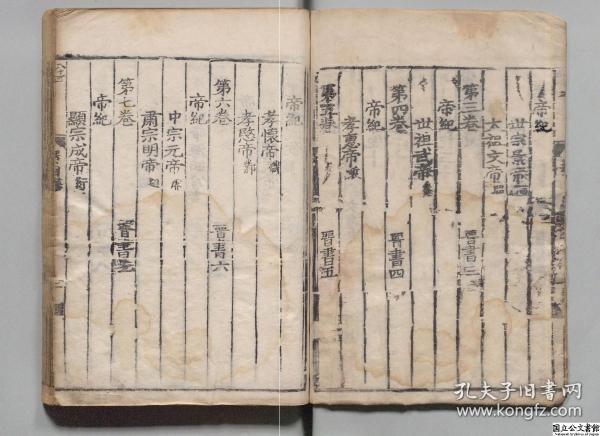 帝紀
世宗景帝師
太祖文帝昭
第三卷 晉書三
帝紀
世祖武帝炎
第四卷 晉書四
帝紀
孝惠帝衷
第五卷 晉書五
帝紀
孝懷帝熾
孝愍帝鄴
第六卷 晉書六
帝紀
中宗元帝睿
肅宗明帝紹
第七卷 晉書七
帝紀
顯宗成帝衍
孔夫子旧书网
www.kongfz.com
国立公文書館
National Archives of Japan